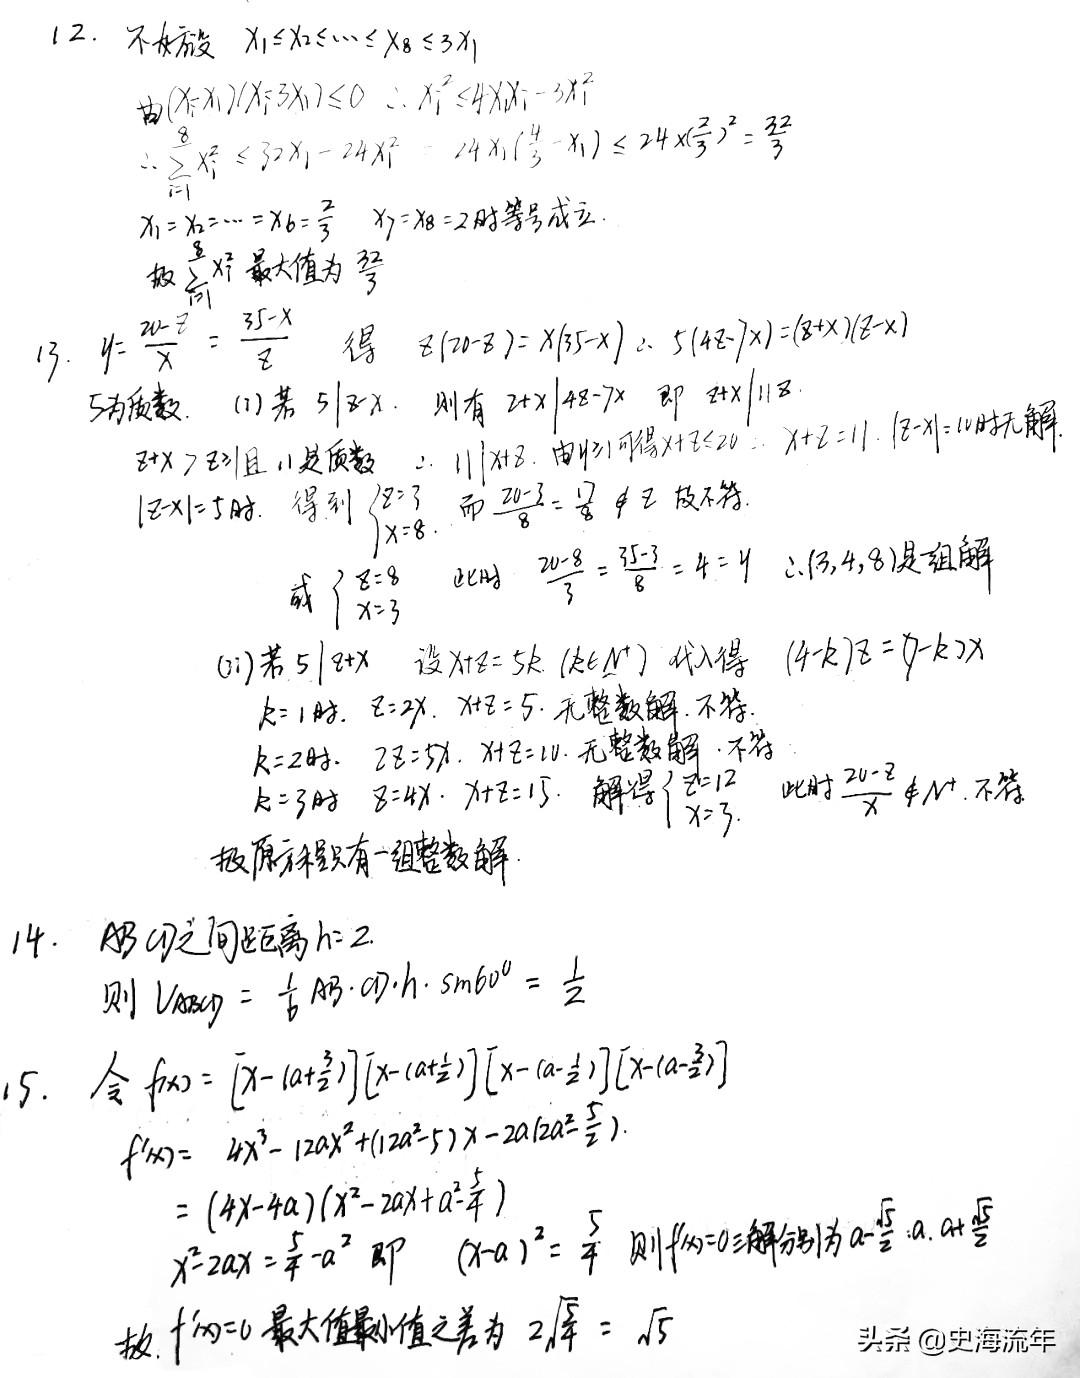 12. 不妨设 x₁≤x₂≤…≤x₈≤3x₁
由(xᵢ-x₁)(xᵢ-3x₁)≤0 ∴ xᵢ²≤4x₁xᵢ-3x₁²
∴ ∑_{i=1}^{8} xᵢ² ≤ 32x₁-24x₁² = 24x₁(4/3-x₁) ≤ 24×(2/3)² = 32/3
x₁=x₂=…=x₆=2/3 x₇=x₈=2时等号成立.
故 ∑_{i=1}^{8} xᵢ² 最大值为 32/3
13. y= (20-z)/x = (35-x)/z 得 z(20-z)=x(35-x) ∴ 5(4z-7x)=(z+x)(z-x)
5为质数. (i) 若 5|z-x. 则有 z+x|4z-7x 即 z+x|11z.
z+x>z≥1且 11是质数 ∴ 11|x+z. 由y≥1可得x+z≤20 ∴ x+z=11. |z-x|=10时无解.
|z-x|=5时. 得到 {z=3 x=8. 而 (20-3)/8 = 17/8 ∉ Z 故不符.
或 {z=8 x=3 此时 (20-8)/3 = (35-3)/8 = 4 = y ∴(3,4,8)是一组解
(ii) 若 5|z+x 设 x+z=5k. (k∈N⁺) 代入得 (4-k)z=(7-k)x
k=1时. z=2x. x+z=5. 无整数解. 不符.
k=2时. 2z=5x. x+z=10. 无整数解. 不符.
k=3时 z=4x. x+z=15. 解得 {z=12 x=3. 此时 (20-z)/x ∉ N⁺. 不符
故原方程只有一组整数解.
14. AB CD之间距离h=2.
则 V_{ABCD} = 1/6 AB·CD·h·sin60° = 1/2
15. 令 f(x) = [x-(a+3/2)][x-(a+1/2)][x-(a-1/2)][x-(a-3/2)]
f'(x)= 4x³-12ax²+(12a²-5)x-2a(2a²-5/2).
= (4x-4a)(x²-2ax+a²-5/4)
x²-2ax=5/4-a² 即 (x-a)²=5/4 则f'(x)=0三解分别为 a-√5/2, a. a+√5/2
故. f'(x)=0 最大值最小值之差为 2√(5/4) = √5
头条 @史海流年